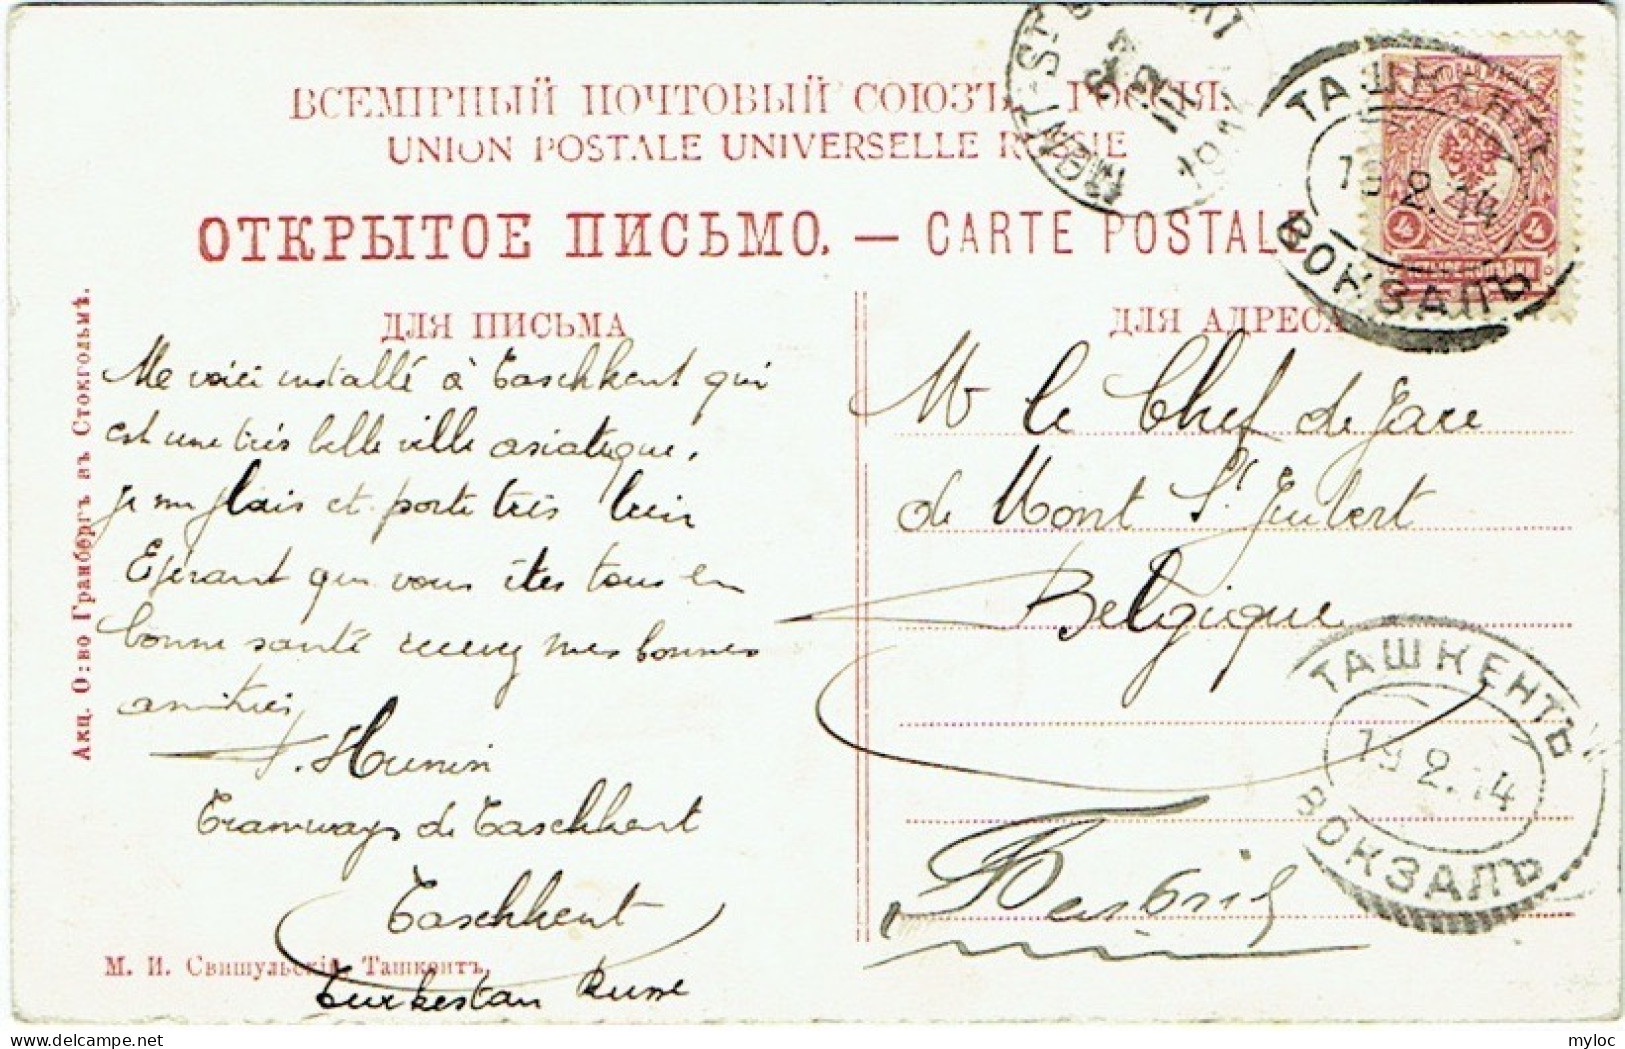 ВСЕМІРНЫЙ ПОЧТОВЫЙ СОЮЗЪ. РОССІЯ.
UNION POSTALE UNIVERSELLE RUSSIE
ОТКРЫТОЕ ПИСЬМО. — CARTE POSTALE
ДЛЯ ПИСЬМА
ДЛЯ АДРЕСА
MONT-ST
ТАШКЕНТЪ
19 2.14
ВОКЗАЛЪ
4 4
Me voici installé à Taschkent qui
est une très belle ville asiatique.
je m'y plais et porte très bien
Espérant que vous êtes tous en
bonne santé recevez mes bonnes
amitiés
J. Hunin
Tramways de Taschkent
Taschkent
Turkestan Russe
Mr le Chef de Gare
de Mont St Guibert
Belgique
ТАШКЕНТЪ
19 2.14
ВОКЗАЛЪ
Акц. О:во Гранбергъ въ Стокгольмѣ.
М. И. Свишульскій, Ташкентъ.
myloc
delcampe.net